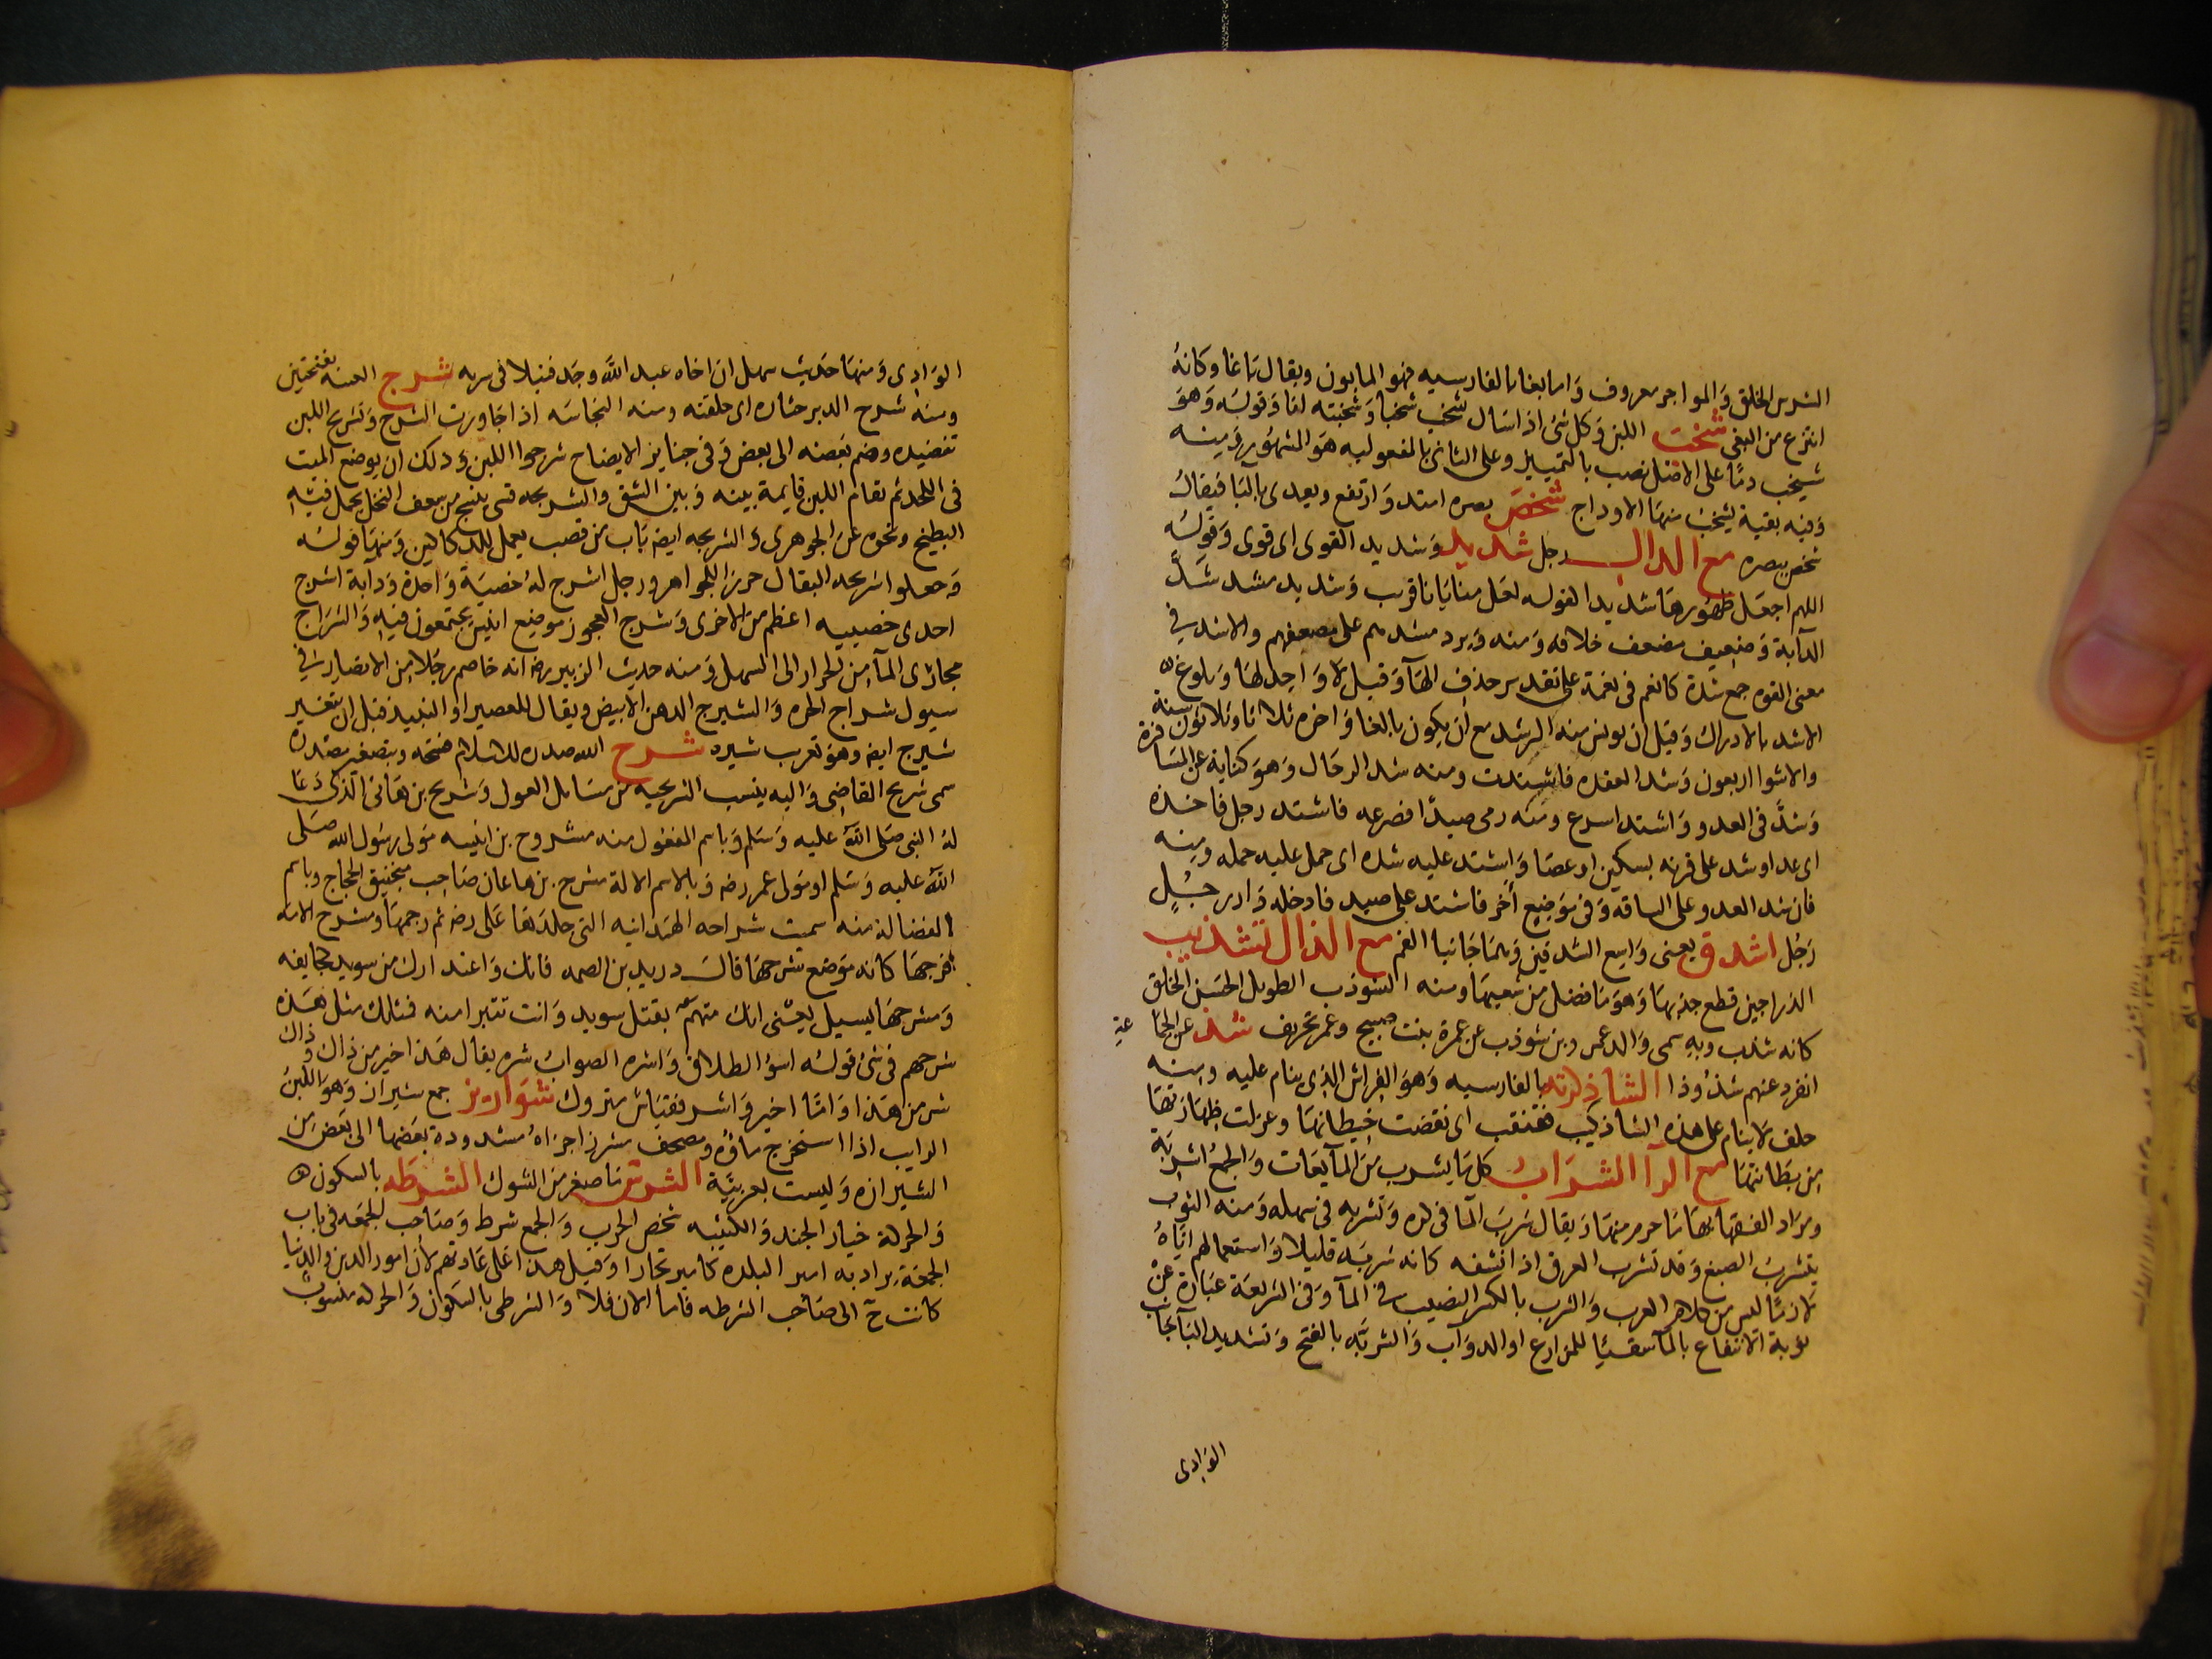 الشرس الخلق والمواجر معروف واما بغا بالفارسيه فهو المابون ويقال باغا وكانه
انتزع من البغى شخب اللبن وكل شئ اذا سال شخب شخبا وشخبته انا وقوله وهو
شيخب دمًا على الاصل نصب بالتمييز وعلى الثانى بالمفعوليه هو المشهور ومنه
وفيه بقية يشخب منها الاوداج شخص بصره امتد وارتفع ويعدى بالبا فيقال
شخص ببصره مع الدال رجل شديد وشديد القوى اى قوى وقوله
اللهم اجعل ظهورها شديدا لقوله لعل منايانا قريب وشديد مشد شد
الدآبة وضعيف مضعف خلافه ومنه ويرد مشدهم على مضعفهم والاشد في
معنى القوه جمع شدة كانعم فى نعمة على تقدير حذف الهآ وقيل لا واحد لها وبلوغ
الاشد بالادراك وقيل ان يونس منه الرشد مع ان يكون بالغا واخره ثلاثا وثلاثون سنة
والاشوا اربعون وشد العقده فاشتدت ومنه شد الرحال وهو كناية عن المسافرة
وشد فى العدو واشتد اسرع ومنه رمى صيدًا فصرعه فاشتد رجل فاخذه
اى عدا وشد على قرنه بسكين او عصا واشتد عليه شده اى حمل عليه حمله ومنه
فان شد العدو على الساقه وفى موضع أخر فاشتد على صيد فادخله دار رجل
رجل اشدق يعنى واسع الشدقين وهما جانبا الفم مع الذال تشذيب
الزراجين قطع جذبها وهو ما فضل من شعبها ومنه الشوذب الطويل الحسن الخلق
كانه شذب وبه سمى والد عمر وبن شوذب عن عمرة بنت صبيح وعمر تحريف شذ عن الجماعة
انفرد عنهم شذوذا الشاذكونه بالفارسيه وهو الفراش الذى ينام عليه ومنه
حلف لا ينام على هذه الشاذكين ففتقت اى نقضت خيطانها وعزلت ظهارتها
من بطانتها مع الرآ الشراب كل ما يشرب من المآيعات والجمع اشربة
ومراد الفقهآ بها ما حرم منها ويقال شرب المآ فى كره وتشربه فى مهله ومنه الثوب
يتشرب الصبغ وقد تشرب العرق اذا نشفه كانه شربه قليلا واستعمالهم اياه
لازمًا ليس من كلام العرب والشرب بالكسر النصيب في المآ وفى الشريعة عبارة عن
نوبة الانتفاع بالمآ سقيًا للمزارع او الدوآب والشربه بالفتح وتشديد البآ جانب
الوادى
الوادى ومنها حديث سهل ان اخاه عبد الله وجد قتيلا فى شربه شرج العيبه بفتحتين
ومنه شرج الدبر حتاره اى حلقته ومنه النجاسه اذا جاورت الشرج وتشريج اللبن
تنضيده وضم بعضه الى بعض وفى جنايز الايضاح شرجوا اللبن وذلك ان يوضع الميت
فى اللحد ثم تقام اللبن قايمة بينه وبين الشق والشريجه شى ينسج من سعف النخل يحمل فيه
البطيخ ونحوه عن الجوهرى والشريجه ايضا باب من قصب يعمل للدكاكين ومنها قوله
وجعلوا شريجه البقال حرزا للجواهر ورجل اشرج له خصية واحدة ودابة اشرج
احدى خصييه اعظم من الاخرى وشرج العجوز موضع انيس يجتمعون فيه والشراج
مجارى المآ من الحرار الى السهل ومنه حديث الزبير رضه انه خاصم رجلا من الانصار في
سيول شراج الحره والشيرج الدهن الابيض ويقال للعصير او النبيذ قبل ان يتغير
شيرج ايضا وهو تعرب شيره شرح الله صدره للاسلام فتحه وبتصغير مصدره
سمى شريح القاضى واليه ينسب الشريحيه من مسايل العول وشريح بن هانى الذى دعا
له النبى صلى الله عليه وسلم وباسم المفعول منه مشروح بن انيسه مولى رسول الله صلى
الله عليه وسلم او مول عمر رضه وبالاسم الالة مشرح بن هاعان صاحب منجنيق الحجاج وباسم
الفضالة منه سميت شراحه الهمدانيه التى جلدها على رضه ثم رجمها ومشرح الامه
فرجها كانه موضع شرحها قال دريد بن الصمه فانك واعتذارك من سويد كحايضه
ومشرحها يسيل يعنى انك متهم بقتل سويد وانت تتبرا منه فمثلك مثل هذه
شرحهم فى شئ قوله اسؤ الطلاق واشره الصواب شره يقال هذا خير من ذاك وذاك
شر من هذا واما اخير واشر فقياس متروك شواريز جمع شيراز وهو اللبن
الرايب اذا استخرج ماؤه ومصحف مشرز اجزاه مشدودة بعضها الى بعض من
الشيرازه وليست بعربية الشرس ما صغر من الشوك الشرطه بالسكون
والحركة خيار الجند والكتيبه تخص الحرب والجمع شرط وصاحب الجمعه فى باب
الجمعة يراد به امير البلده كامير بخارا وقيل هذا على عادتهم لان امور الدين والدنيا
كانت ح الى صاحب الشرطه فاما الان فلا والشرطى بالسكون والحركه منسوب